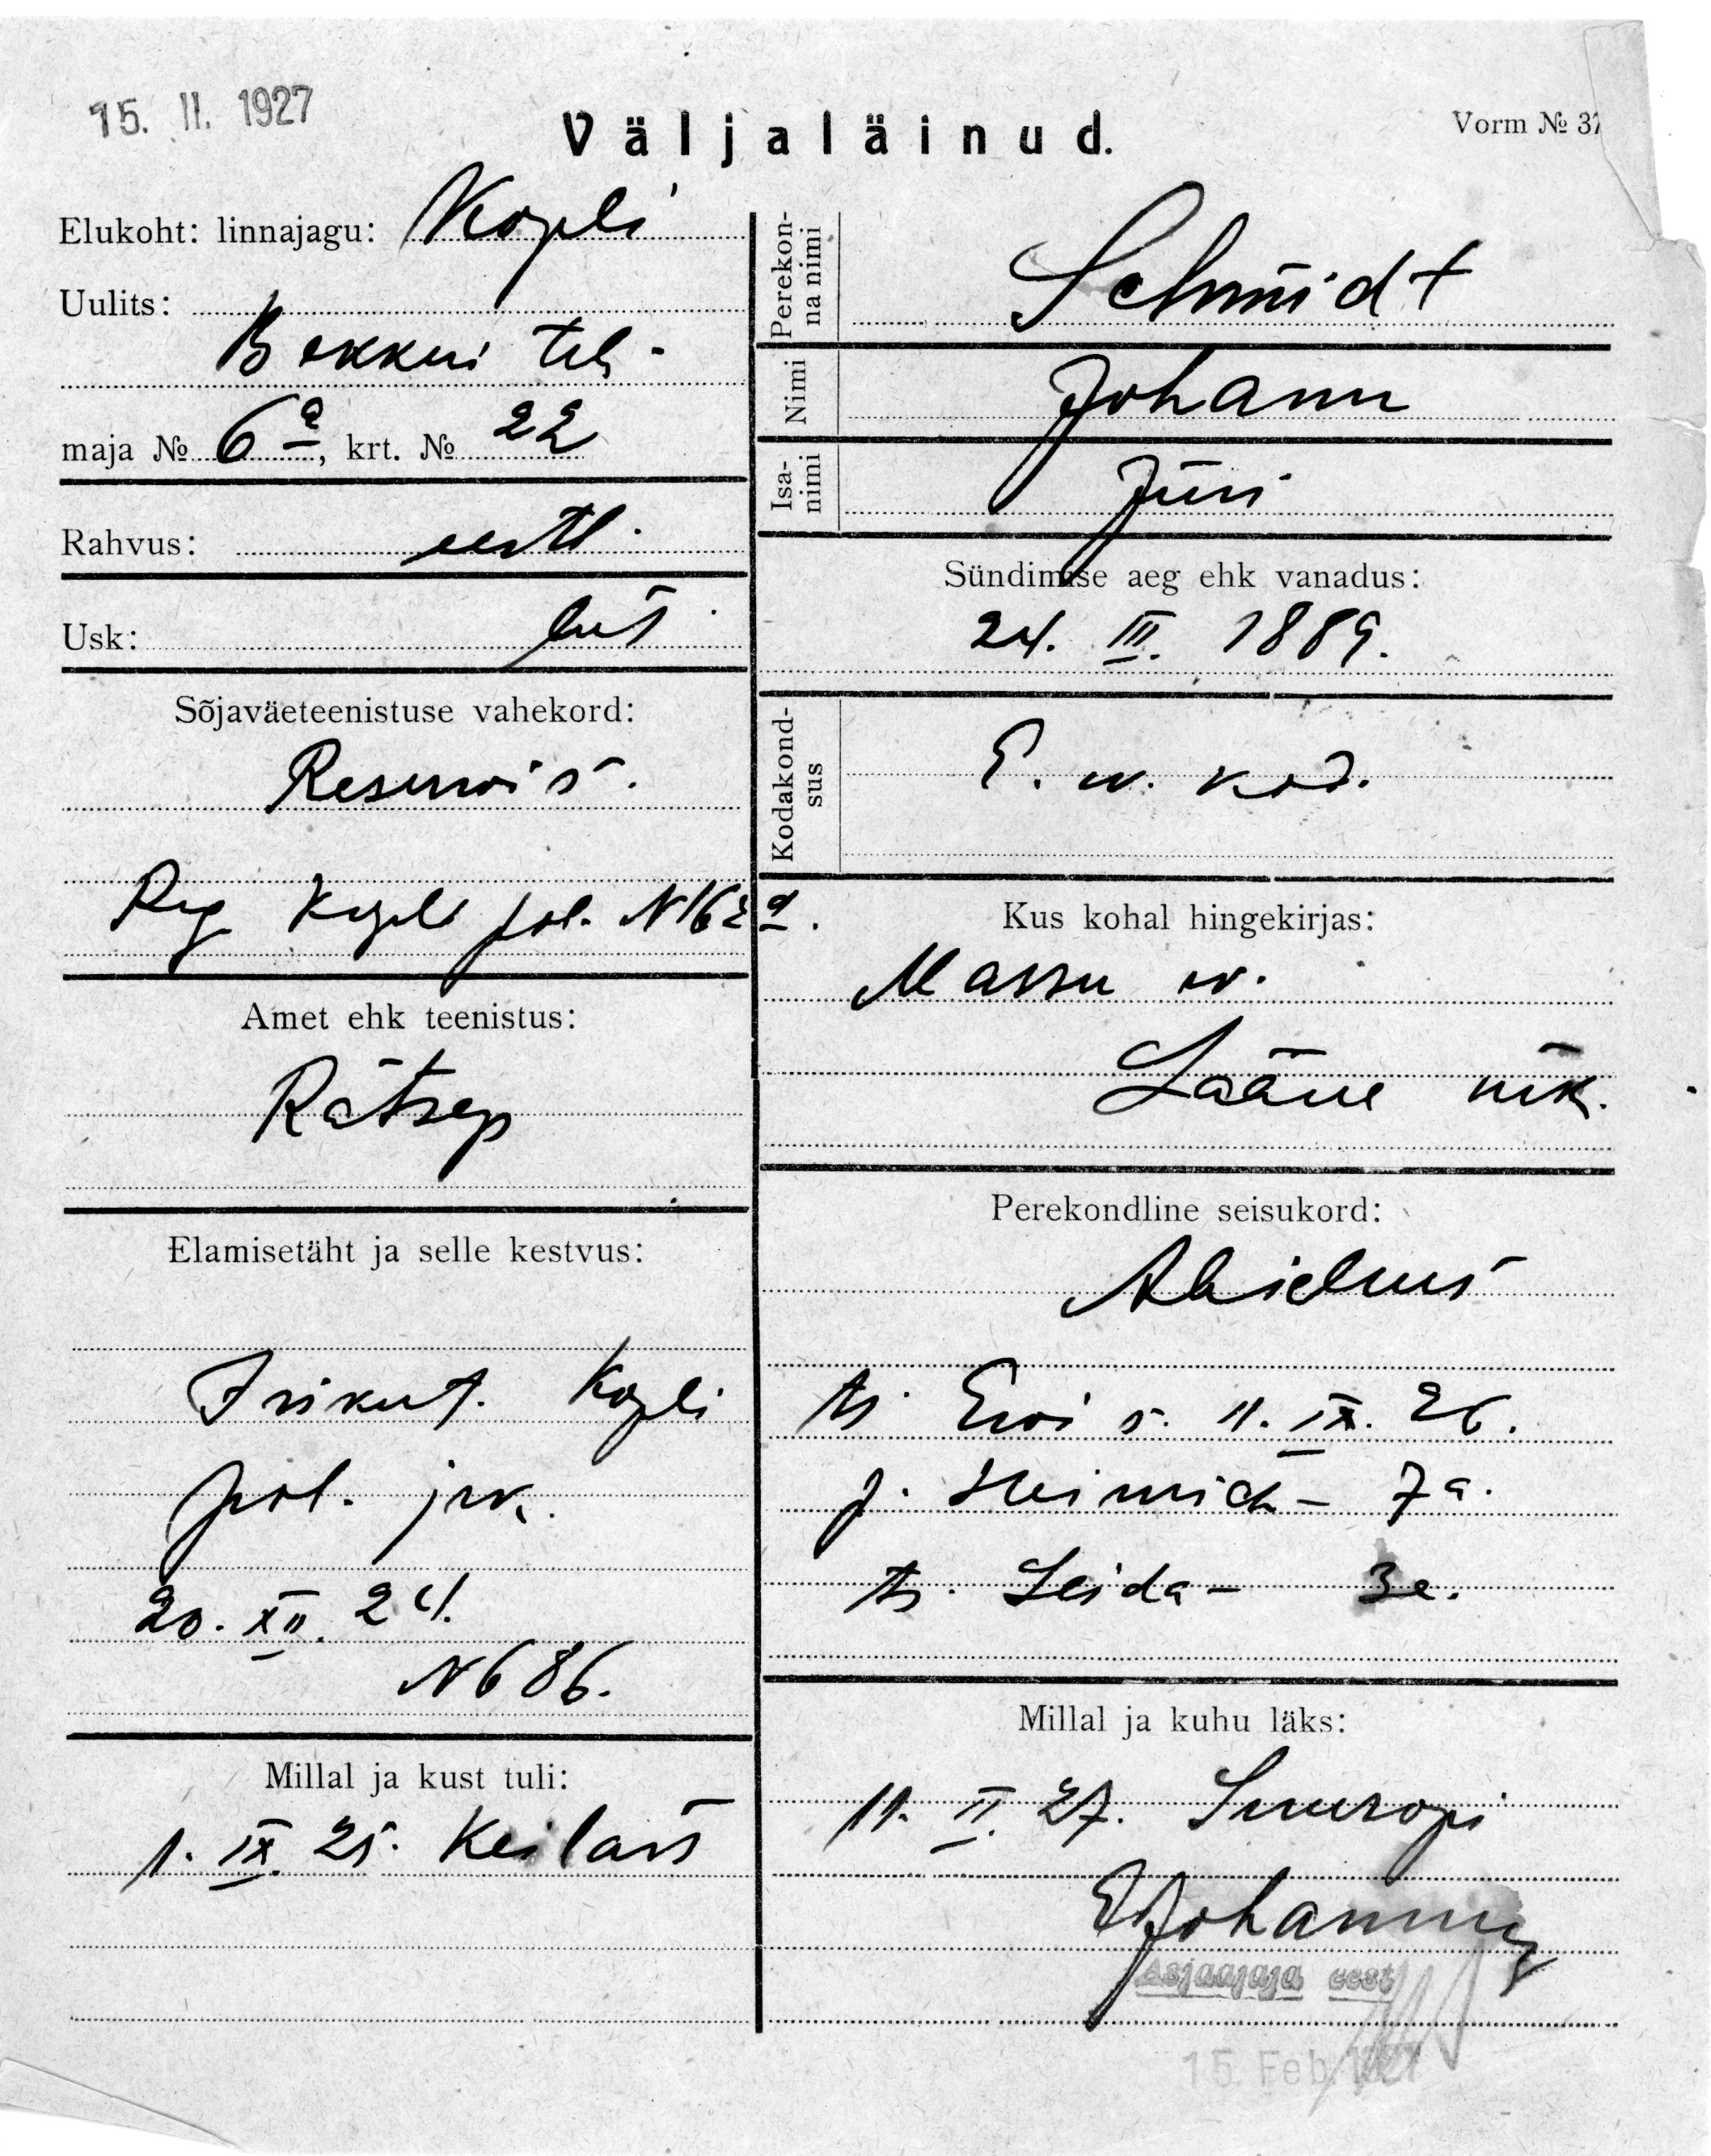 15. II. 1927
Väljaläinud.
Vorm № 37
Elukoht: linnajagu: Kopli
Uulits:
Bekkeri teh.
maja № 6a, krt. № 22
Rahvus: eestl.
Usk: lut.
Sõjaväeteenistuse vahekord:
Reservis.
Reg Kopli pol. N 162 a.
Amet ehk teenistus:
Rätsep
Elamisetäht ja selle kestvus:
Isikut. Kopli
pol. jsk.
20. XII. 24.
N 686.
Millal ja kust tuli:
1. IX. 25. Keilast
Perekonna nimi
Schmidt
Nimi
Johann
Isanimi
Jüri
Sündimise aeg ehk vanadus:
24. III. 1889.
Kodakondsus
E. w. kod.
Kus kohal hingekirjas:
Massu w.
Lääne mk.
Perekondline seisukord:
Abielus
t. Ewi s. 11. IX. 26.
p. Heinrich – 7 a.
t. Leida – 3 a.
Millal ja kuhu läks:
11. II. 27. Suuropi
EJohanning
Asjaajaja eest
15. Feb. 1927